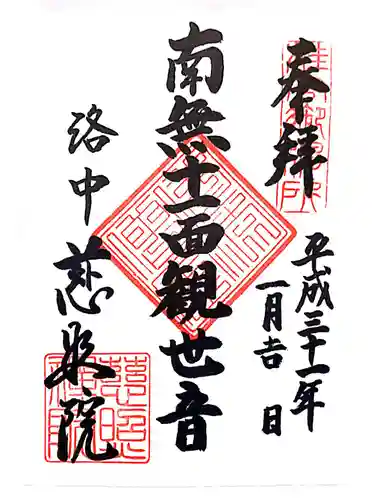 奉拝
平成三十一年
一月吉日
南無十一面観世音
洛中
慈照院